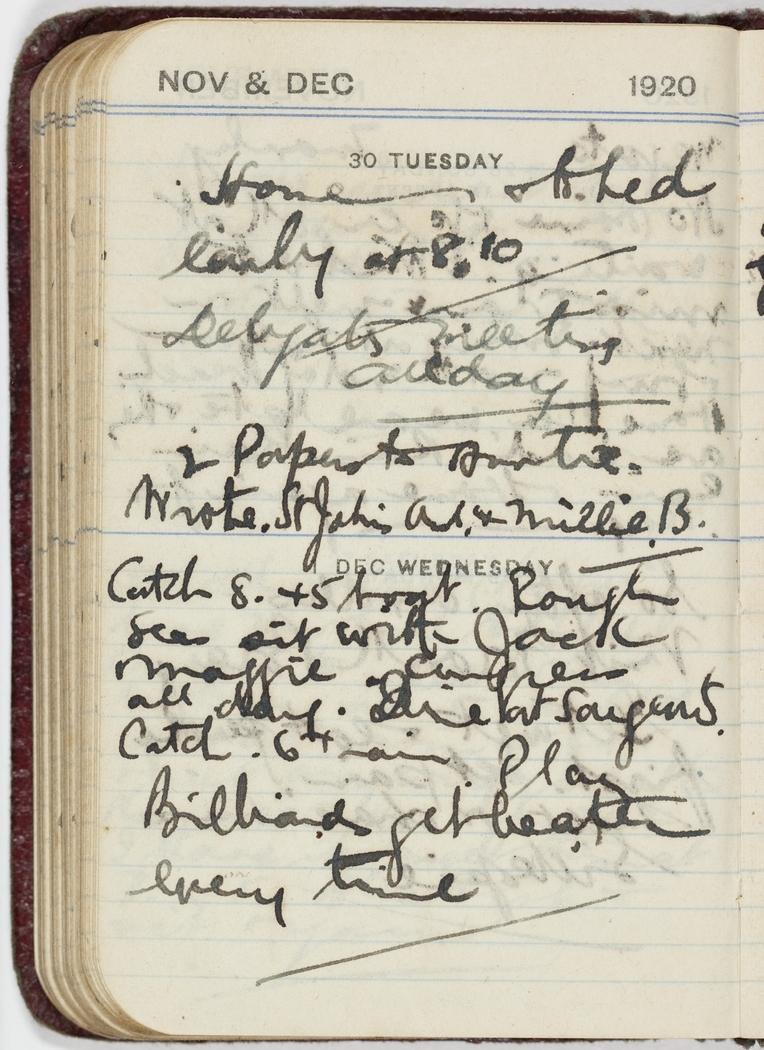 NOV & DEC 1920
30 TUESDAY
Home to bed
Early at 8.10
Delegats Meeting
all day
2 Papers to Auntie.
Wrote. St Johns & Millie B.
DEC WEDNESDAY
Catch 8.45 boat. Rough
sea sit with Jack
Maggie. Congress
all day. Dine at Sargents.
Catch. 6
Play
Billiards get beaten
every time